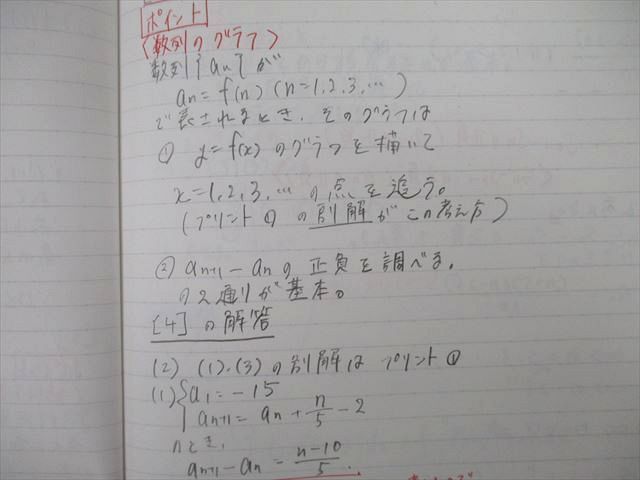 ポイント
〈数列のグラフ〉
数列{an}が
an=f(n) (n=1,2,3,…)
で表されるとき、そのグラフは
① y=f(x) のグラフを描いて
x=1,2,3,… の点を追う。
(プリント① の別解がこの考え方)
② an+1-an の正負を調べる。
の2通りが基本。
[4] の解答
(2) (1)、(3)の別解は プリント①
(1) { a1=-15
an+1=an+n/5-2
のとき、
an+1-an=n-10/5.